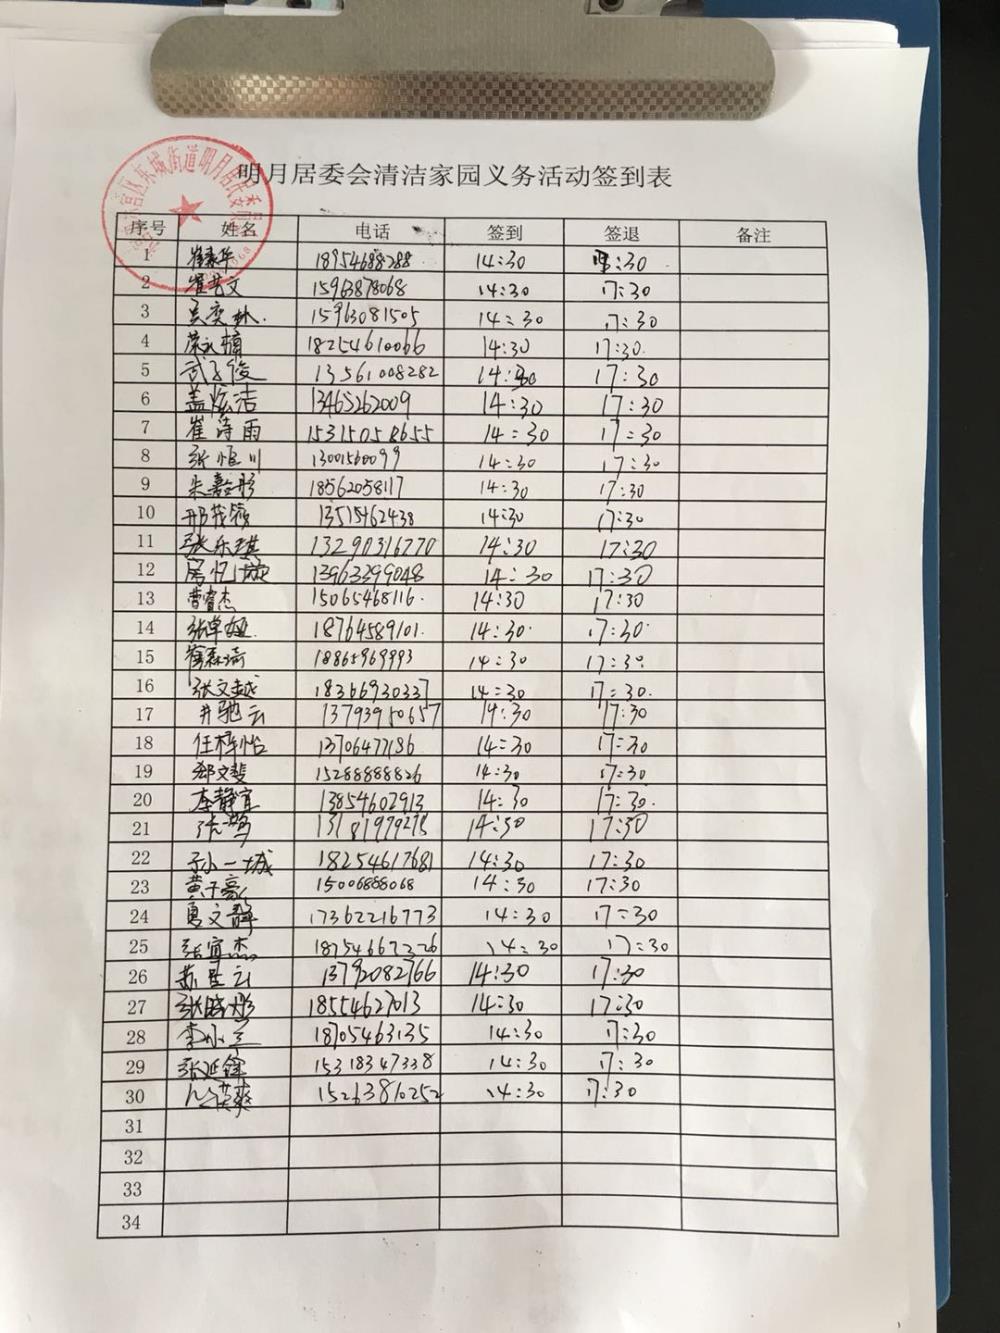 明月居委会清洁家园义务活动签到表
序号 姓名 电话 签到 签退 备注
1 18954688288 14:30 :30
2 崔艺文 15963878068 14:30 17:30
3 吴奕 15963081505 14:30 17:30
4 18254610066 14:30 17:30
5 武子俊 13561008282 14:30 17:30
6 盖炫洁 13465262009 14:30 17:30
7 崔诗雨 15315058655 14:30 17:30
8 张恒川 13001560099 14:30 17:30
9 朱嘉彤 18562058117 14:30 17:30
10 邢 13515462438 14:30 17:30
11 张乐琪 13290316770 14:30 17:30
12 房忆 13963399048 14:30 17:30
13 曹睿杰 15065468116 14:30 17:30
14 张卓娅 18764589101 14:30 17:30
15 18865969993 14:30 17:30
16 张文越 18366930337 14:30 17:30
17 井驰云 13793950657 14:30 17:30
18 任梓怡 13706477186 14:30 17:30
19 郑文斐 15288888826 14:30 17:30
20 李静宜 13854602913 14:30 17:30
21 张 13181979275 14:30 17:30
22 孙一城 18254617681 14:30 17:30
23 黄子豪 15006888068 14:30 17:30
24 文静 17362216773 14:30 17:30
25 张宜杰 14:30 17:30
26 苏 云 13792082766 14:30 17:30
27 张 彤 18554627013 14:30 17:30
28 李 18705463135 14:30 17:30
29 张延锋 15318347338 14:30 17:30
30 爽 15263810252 14:30 17:30
31
32
33
34